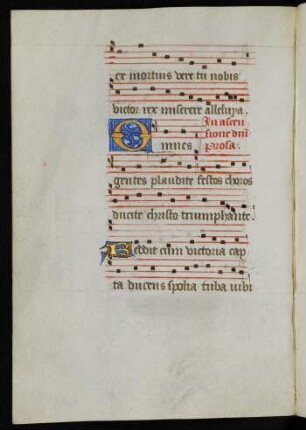 ex mortuis vere tu nobis
victor rex miserere alleluya.
In ascen
Omnes sione dni
Prosa.
gentes plaudite festos choros
ducite christo triumphante.
Redit cum victoria cap
ta ducens spolia tuba iubi